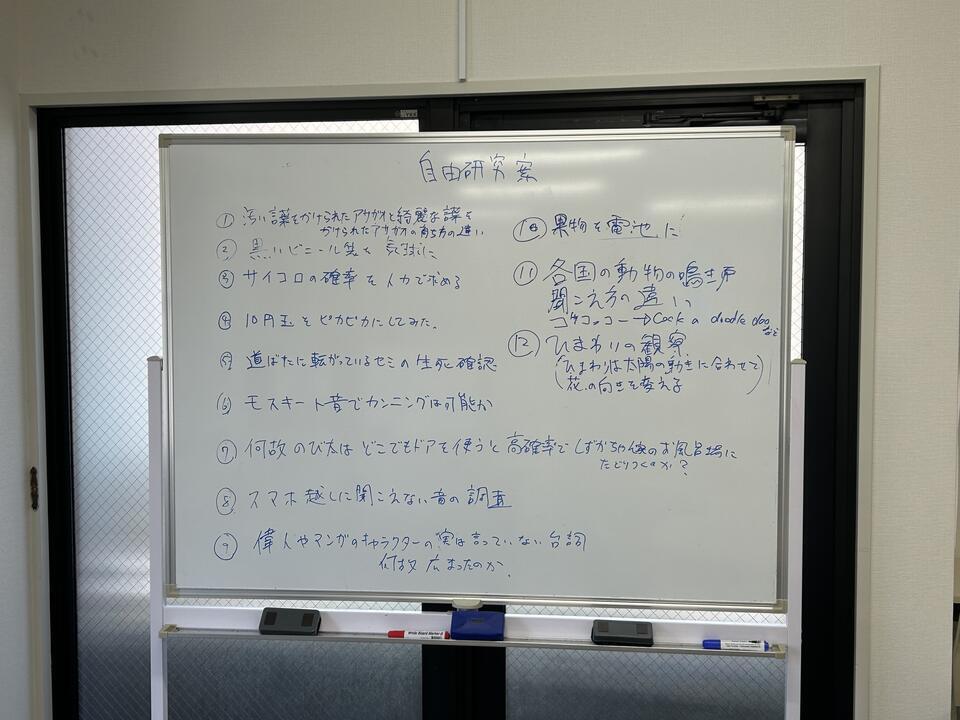 自由研究案
① 汚い言葉をかけられたアサガオと綺麗な言葉を
かけられたアサガオの育ち方の違い
② 黒いビニール袋を気球に
③ サイコロの確率を人力で求める
④ 10円玉をピカピカにしてみた。
⑤ 道ばたに転がっているセミの生死確認
⑥ モスキート音でカンニングは可能か
⑦ 何故のび太はどこでもドアを使うと高確率でしずかちゃん家のお風呂場に
たどりつくのか?
⑧ スマホ越しに聞こえない音の調査
⑨ 偉人やマンガのキャラクターの実は言っていない台詞
何故広まったのか。
⑩ 果物を電池に
⑪ 各国の動物の鳴き声
聞こえ方の違い
コケコッコー→Cock a doodle doo
など
⑫ ひまわりの観察
(ひまわりは太陽の動きに合わせて
花の向きを変える)
White Board Marker